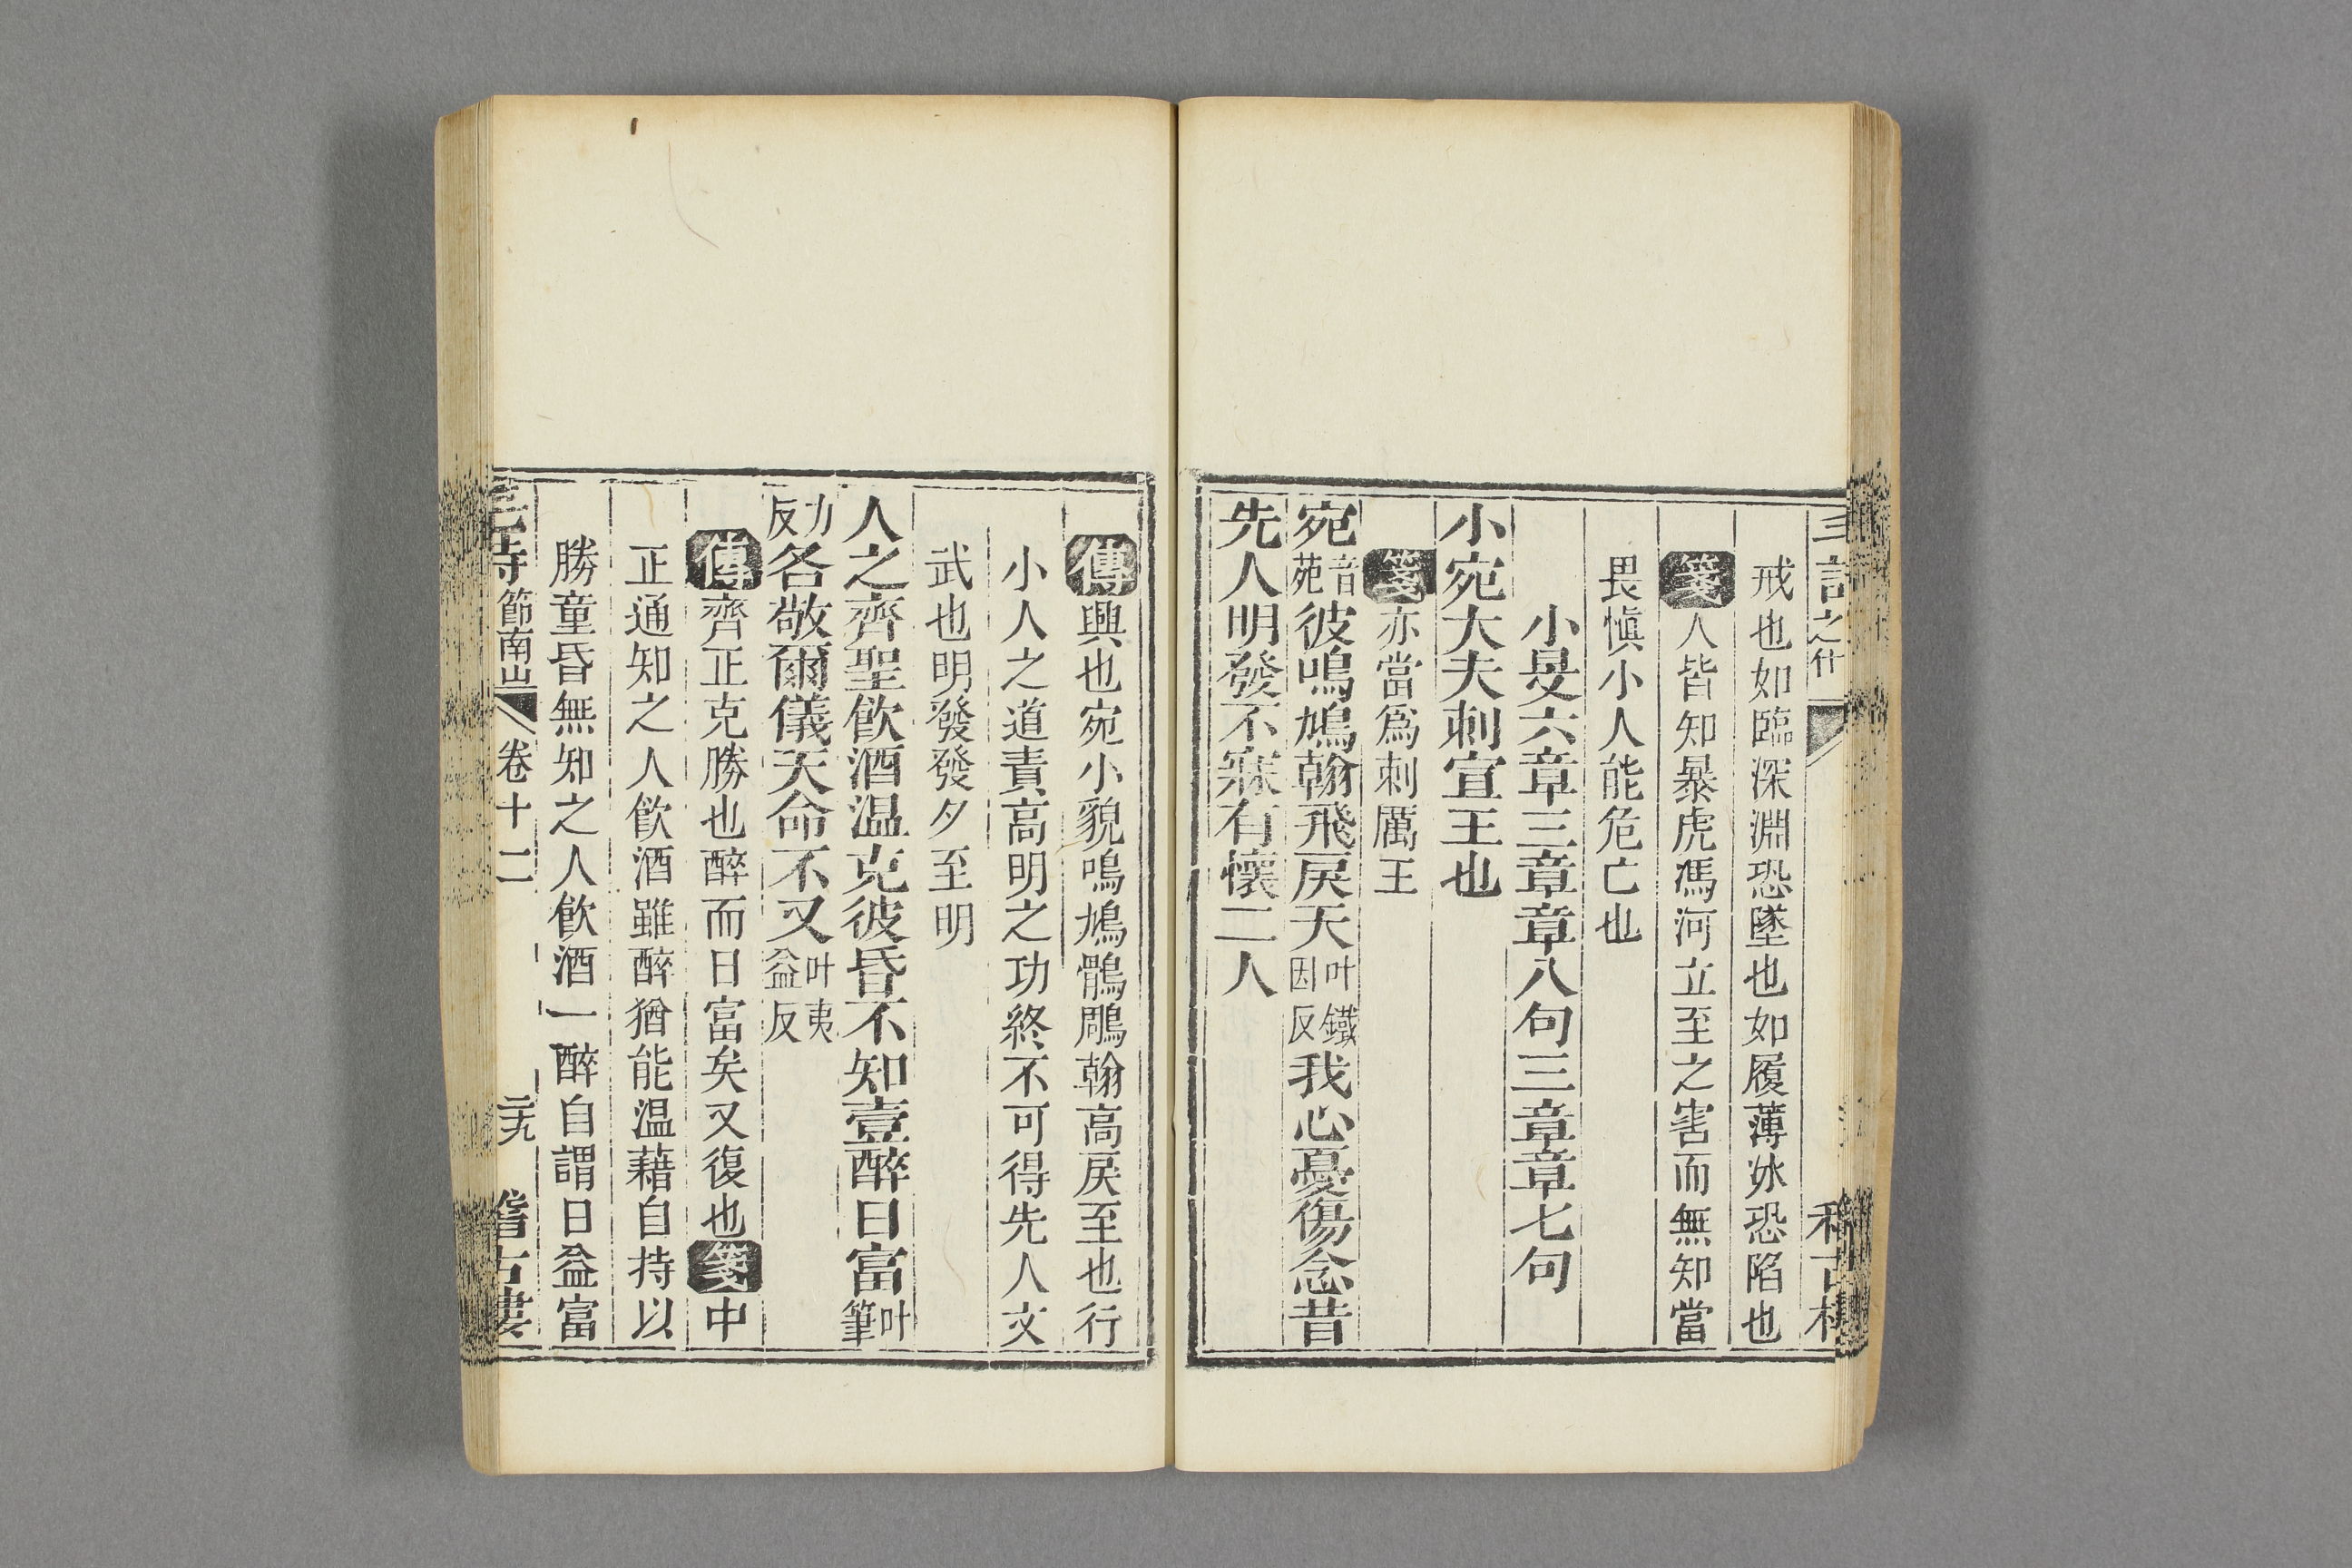 詩之什
戒也如臨深淵恐墜也如履薄冰恐陷也
箋人皆知暴虎馮河立至之害而無知當
畏慎小人能危亡也
小旻六章三章章八句三章章七句
小宛大夫刺宣王也
箋亦當爲刺厲王
宛音苑彼鳴鳩翰飛戾天叶鐵因反我心憂傷念昔
先人明發不寐有懷二人
傳興也宛小貌鳴鳩鶻鵰翰高戾至也行
小人之道責高明之功終不可得先人文
武也明發發夕至明
人之齊聖飲酒温克彼昏不知壹醉日富叶筆
力反各敬爾儀天命不又叶夷益反
傳齊正克勝也醉而日富矣又復也箋中
正通知之人飲酒雖醉猶能温藉自持以
勝童昏無知之人飲酒一醉自謂日益富
毛詩節南山 卷十二 二十九 稽古樓